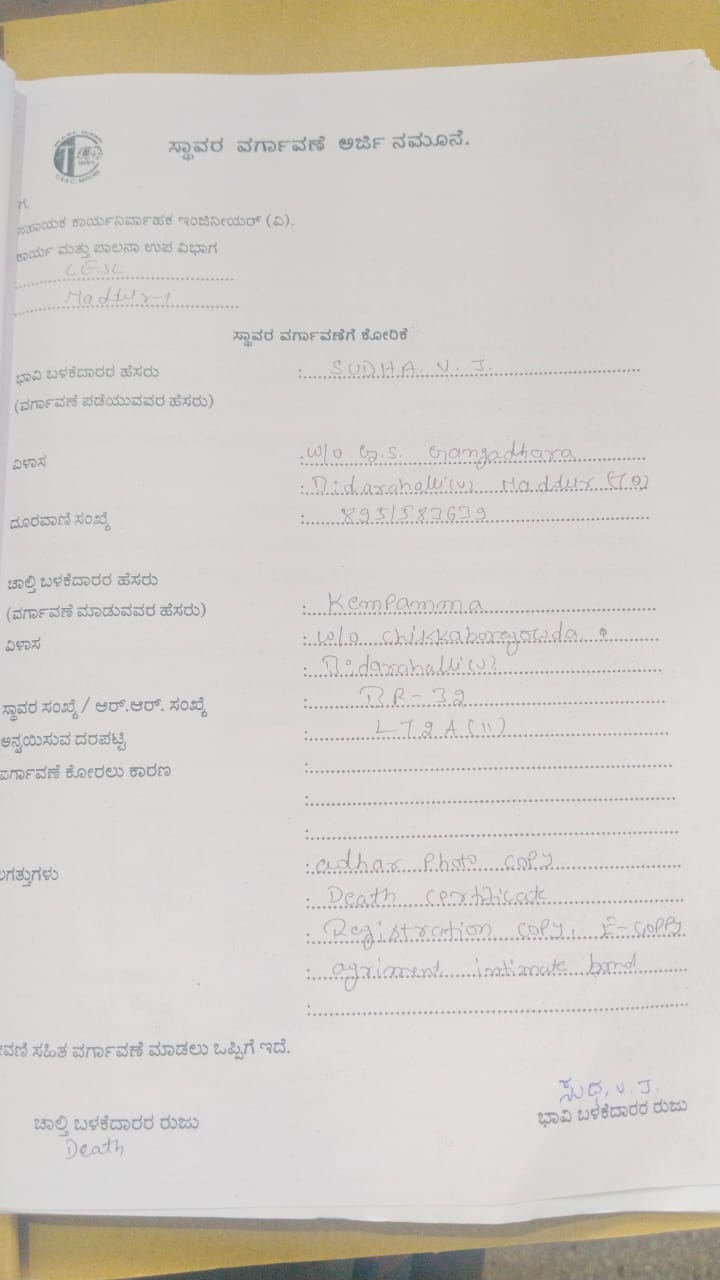 ಸ್ಥಾವರ ವರ್ಗಾವಣೆ ಅರ್ಜಿ ನಮೂನೆ.
ಗೆ,
ಸಹಾಯಕ ಕಾರ್ಯನಿರ್ವಾಹಕ ಇಂಜಿನೀಯರ್ (ವಿ).
ಕಾರ್ಯ ಮತ್ತು ಪಾಲನಾ ಉಪ ವಿಭಾಗ
CESC
Maddur-1
ಸ್ಥಾವರ ವರ್ಗಾವಣೆಗೆ ಕೋರಿಕೆ
ಭಾವಿ ಬಳಕೆದಾರರ ಹೆಸರು : SUDHA. V. J.
(ವರ್ಗಾವಣೆ ಪಡೆಯುವವರ ಹೆಸರು)
ವಿಳಾಸ : W/o G.S. Gangadhara
: Bidarahalli (V) Maddur (TQ)
ದೂರವಾಣಿ ಸಂಖ್ಯೆ : 8951587679
ಚಾಲ್ತಿ ಬಳಕೆದಾರರ ಹೆಸರು
(ವರ್ಗಾವಣೆ ಮಾಡುವವರ ಹೆಸರು) : Kempamma
ವಿಳಾಸ : W/o Chikkaboregowda
: Bidarahalli (V)
ಸ್ಥಾವರ ಸಂಖ್ಯೆ / ಆರ್.ಆರ್. ಸಂಖ್ಯೆ : BR-32
ಅನ್ವಯಿಸುವ ದರಪಟ್ಟಿ : LT2A(II)
ವರ್ಗಾವಣೆ ಕೋರಲು ಕಾರಣ :
:
:
ಲಗತ್ತುಗಳು : adhar Photo copy
: Death certificate
: Registration copy, E-copy
: agriment intimate bond
:
ಠೇವಣಿ ಸಹಿತ ವರ್ಗಾವಣೆ ಮಾಡಲು ಒಪ್ಪಿಗೆ ಇದೆ.
ಸುಧ, V. J.
ಚಾಲ್ತಿ ಬಳಕೆದಾರರ ರುಜು ಭಾವಿ ಬಳಕೆದಾರರ ರುಜು
Death